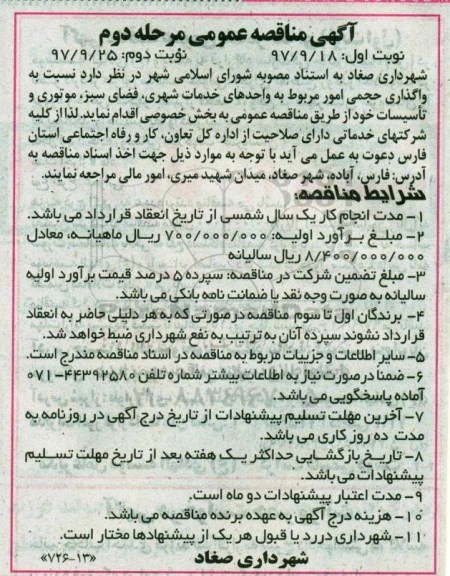 آگهی مناقصه عمومی مرحله دوم
نوبت اول: ۹۷/۹/۱۸ نوبت دوم: ۹۷/۹/۲۵
شهرداری صغاد به استناد مصوبه شورای اسلامی شهر در نظر دارد نسبت به
واگذاری حجمی امور مربوط به واحدهای خدمات شهری، فضای سبز، موتوری و
تأسیسات خود از طریق مناقصه عمومی به بخش خصوصی اقدام نماید. لذا از کلیه
شرکتهای خدماتی دارای صلاحیت از اداره کل تعاون، کار و رفاه اجتماعی استان
فارس دعوت به عمل می آید با توجه به موارد ذیل جهت اخذ اسناد مناقصه به
آدرس: فارس، آباده، شهر صغاد، میدان شهید میری، امور مالی مراجعه نمایند.
شرایط مناقصه:
۱- مدت انجام کار یک سال شمسی از تاریخ انعقاد قرارداد می باشد.
۲- مبلغ برآورد اولیه: ۷۰۰/۰۰۰/۰۰۰ ریال ماهیانه، معادل
۸/۴۰۰/۰۰۰/۰۰۰ ریال سالیانه
۳- مبلغ تضمین شرکت در مناقصه: سپرده ۵ درصد قیمت برآورد اولیه
سالیانه به صورت وجه نقد یا ضمانت نامه بانکی می باشد.
۴- برندگان اول تا سوم مناقصه در صورتی که به هر دلیلی حاضر به انعقاد
قرارداد نشوند سپرده آنان به ترتیب به نفع شهرداری ضبط خواهد شد.
۵- سایر اطلاعات و جزییات مربوط به مناقصه در اسناد مناقصه مندرج است.
۶- ضمنا در صورت نیاز به اطلاعات بیشتر شماره تلفن ۴۴۳۹۲۵۸۰-۰۷۱
آماده پاسخگویی می باشد.
۷- آخرین مهلت تسلیم پیشنهادات از تاریخ درج آگهی در روزنامه به
مدت ده روز کاری می باشد.
۸- تاریخ بازگشایی حداکثر یک هفته بعد از تاریخ مهلت تسلیم
پیشنهادات می باشد.
۹- مدت اعتبار پیشنهادات دو ماه است.
۱۰- هزینه درج آگهی به عهده برنده مناقصه می باشد.
۱۱- شهرداری در رد یا قبول هر یک از پیشنهادها مختار است.
شهرداری صغاد «۷۲۶-۱۳»